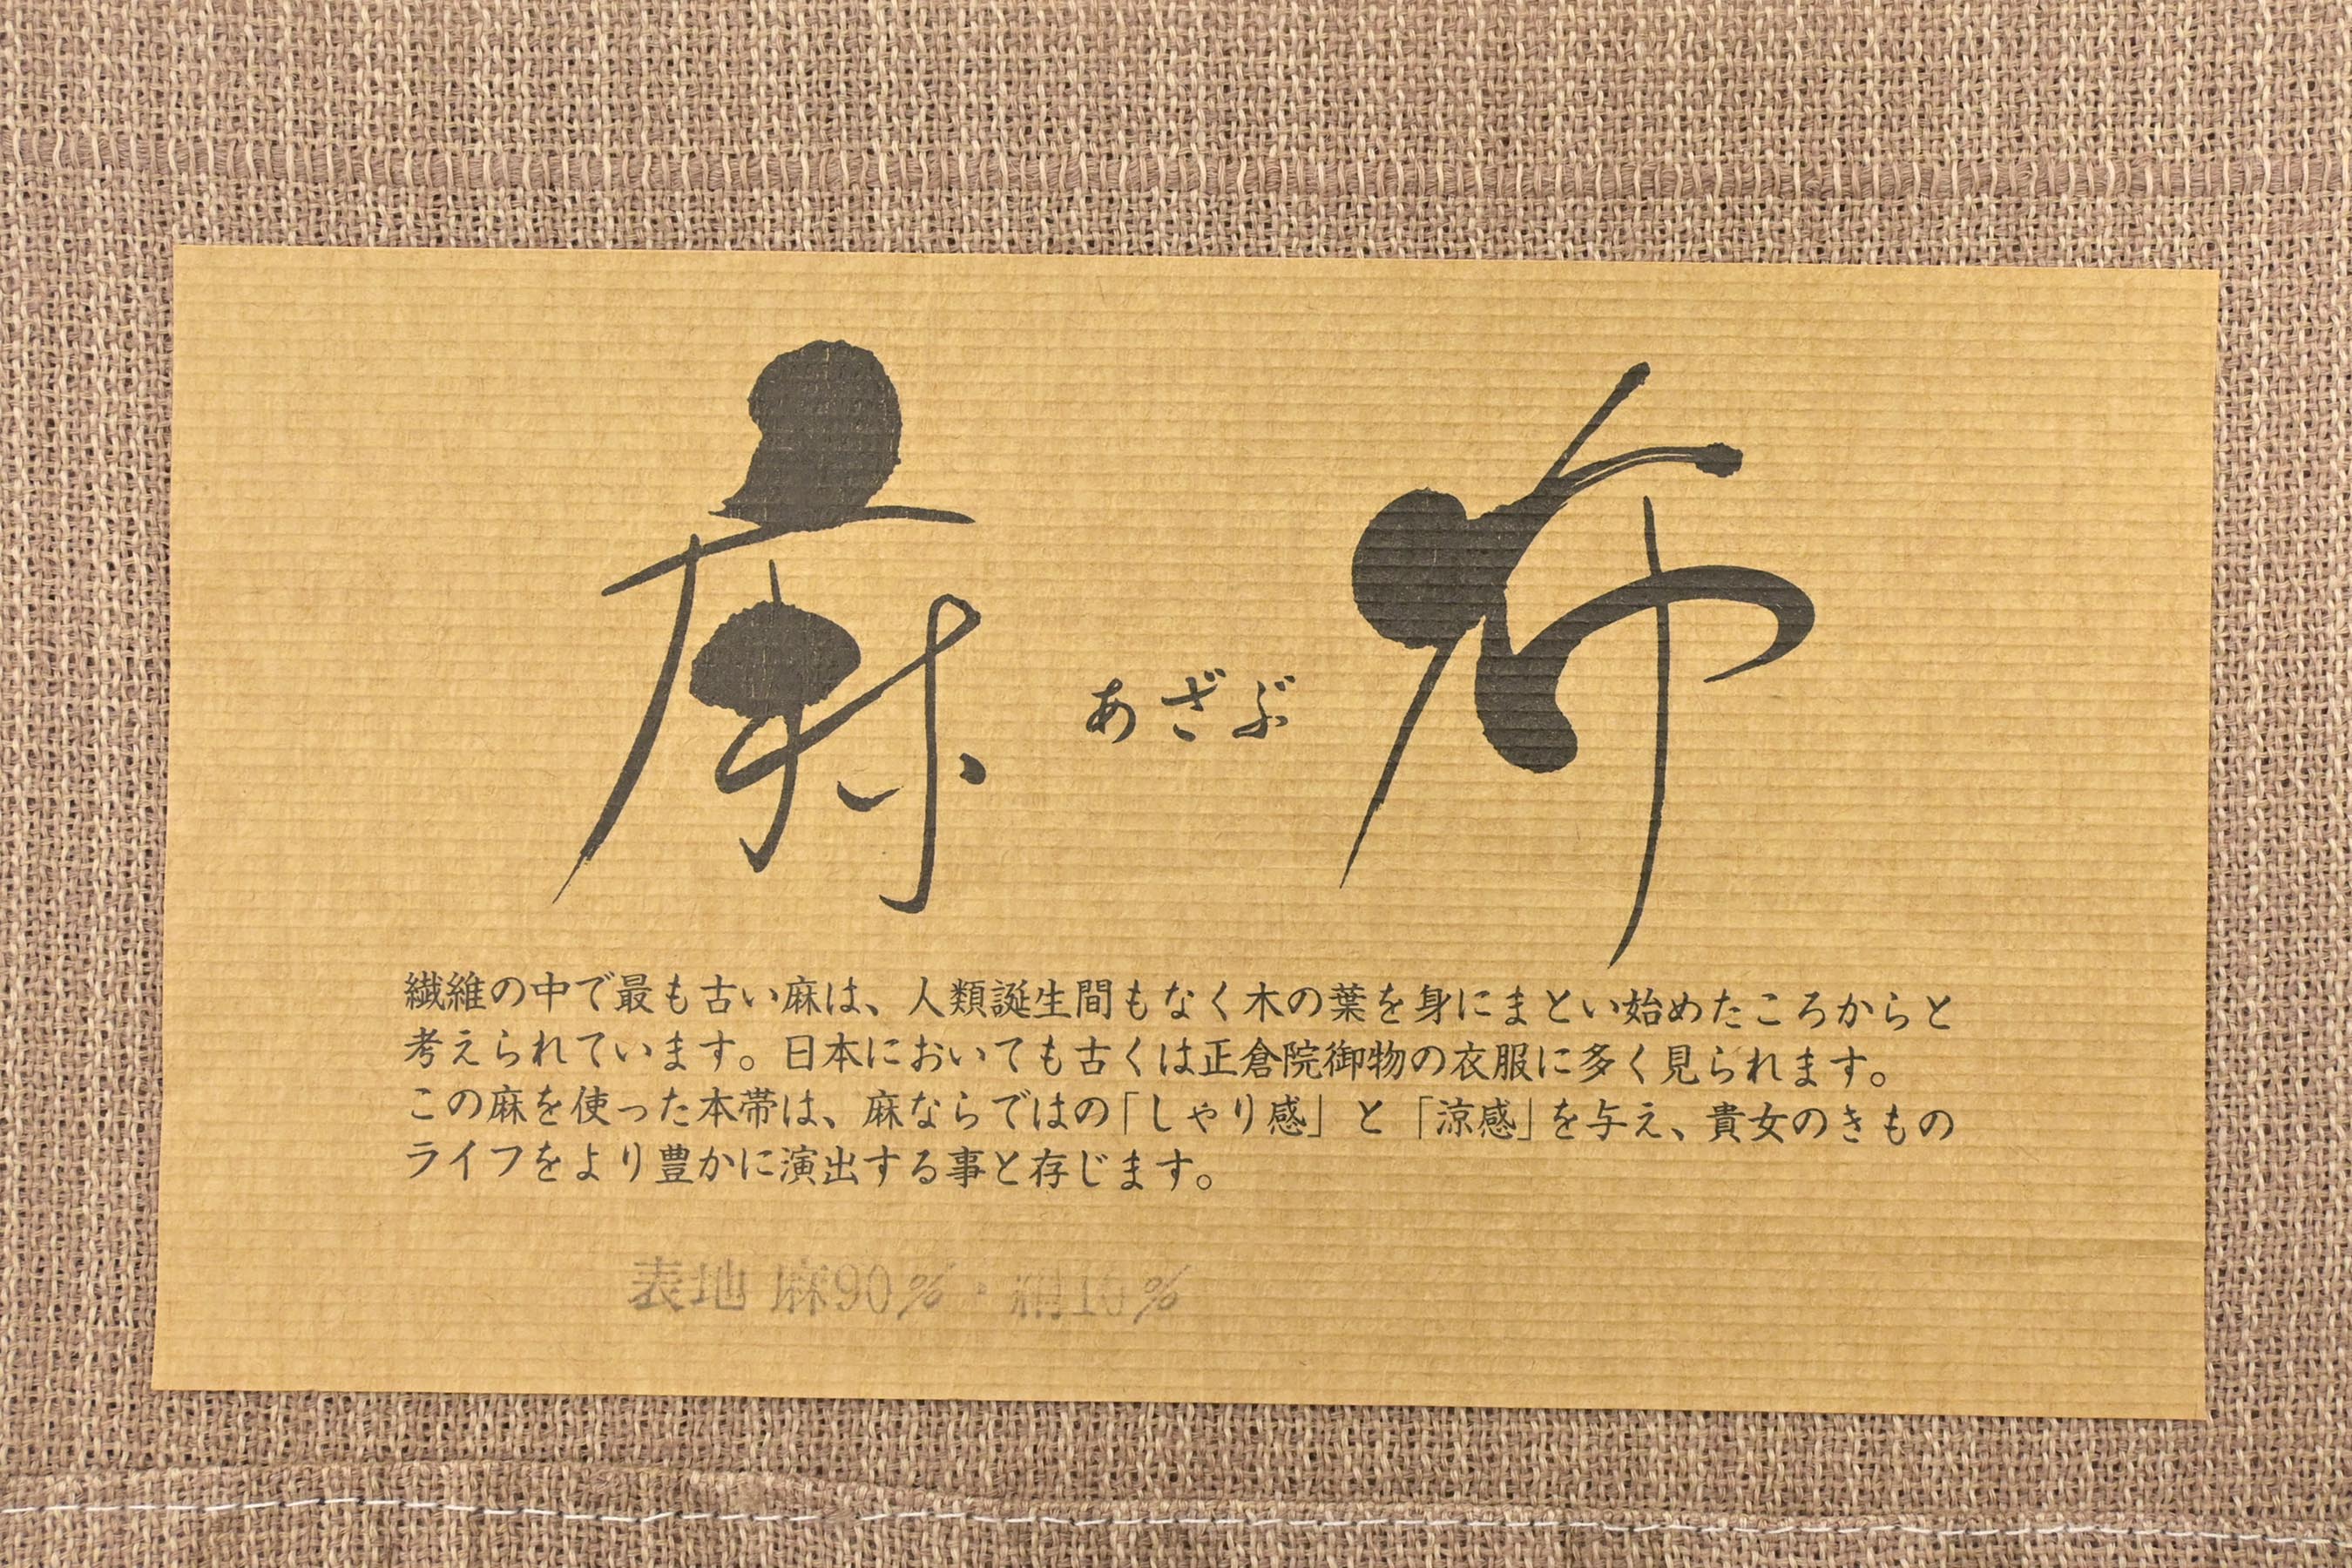 麻布
あざぶ
繊維の中で最も古い麻は、人類誕生間もなく木の葉を身にまとい始めたころからと
考えられています。日本においても古くは正倉院御物の衣服に多く見られます。
この麻を使った本帯は、麻ならではの「しゃり感」と「涼感」を与え、貴女のきもの
ライフをより豊かに演出する事と存じます。
表地 麻90%・絹10%